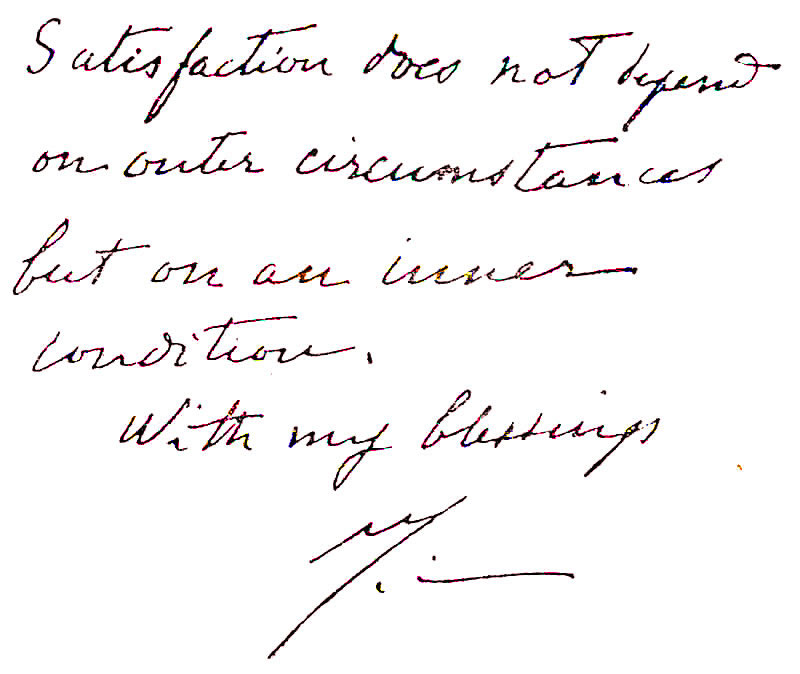 Satisfaction does not depend
on outer circumstances
but on an inner
condition.
With my blessings